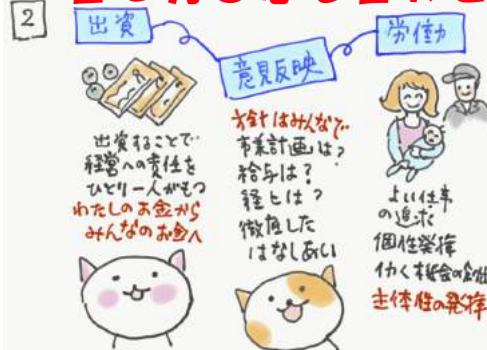 2
出資
出資することで
経営への責任を
ひとり一人がもつ
わたしのお金から
みんなのお金へ
意見反映
方針はみんなで
事業計画は?
給与は?
経ヒは?
徹底した
はなしあい
労働
よい仕事
の追求
個性発揮
働く機会の創出
主体性の発揮